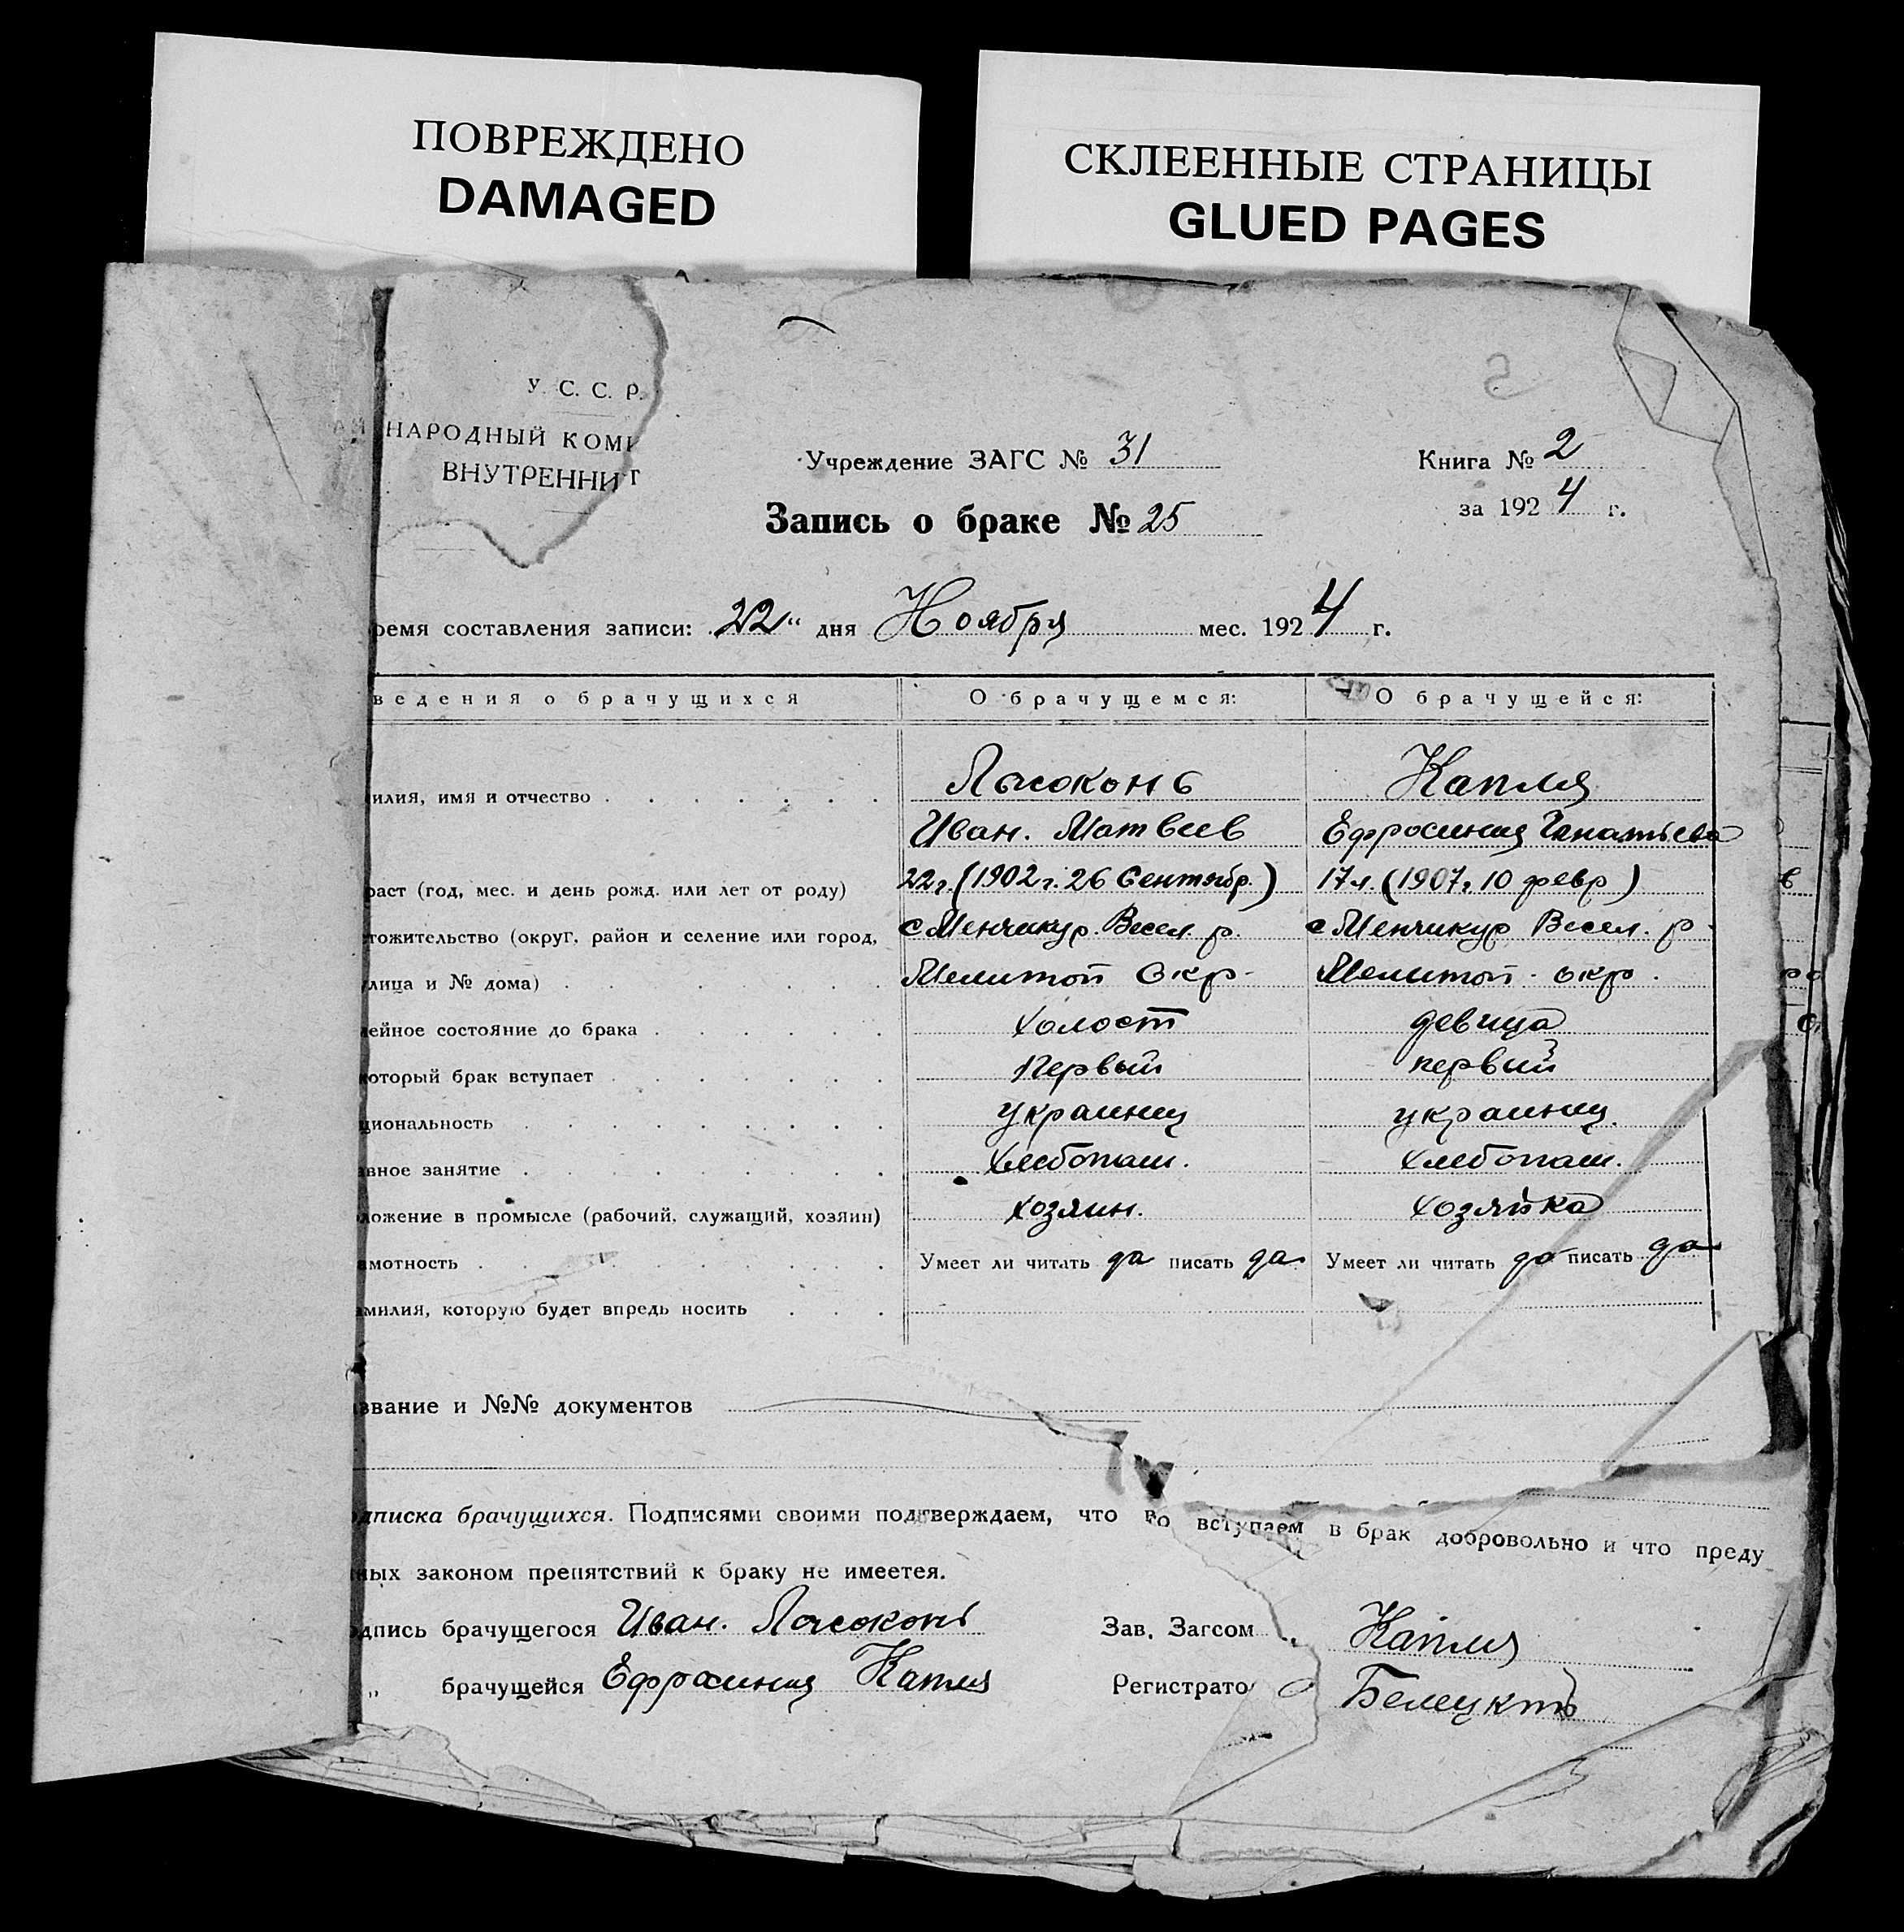 ПОВРЕЖДЕНО
DAMAGED
СКЛЕЕННЫЕ СТРАНИЦЫ
GLUED PAGES
У. С. С. Р.
НАРОДНЫЙ КОМИ
ВНУТРЕННИ
Учреждение ЗАГС № 31
Книга № 2
за 1924 г.
Запись о браке № 25
ремя составления записи: 22" дня Ноября мес. 1924 г.
ведения о брачущихся О брачущемся: О брачущейся:
илия, имя и отчество Лысоконь Капля
Иван. Матвеев Ефросиния Игнатьева
раст (год, мес. и день рожд. или лет от роду) 22 г. (1902 г. 26 Сентябр.) 17 л. (1907 г. 10 февр)
тожительство (округ, район и селение или город, с Менчикур. Весел. р. с Менчикур Весел. р.
лица и № дома) Мелитоп окр- Мелитоп. окр.
ейное состояние до брака холост девица
оторый брак вступает первый первый
циональность украинец украинец.
вное занятие хлебопаш. хлебопаш.
ложение в промысле (рабочий, служащий, хозяин) хозяин. хозяйка
мотность Умеет ли читать да писать да Умеет ли читать да писать да
милия, которую будет впредь носить
звание и №№ документов
дписка брачущихся. Подписями своими подтверждаем, что во вступаем в брак добровольно и что преду
ных законом препятствий к браку не имеетея.
дпись брачущегося Иван. Лысоконь Зав. Загсом Капля
„ брачущейся Ефросиния Капля Регистрато Белецкий